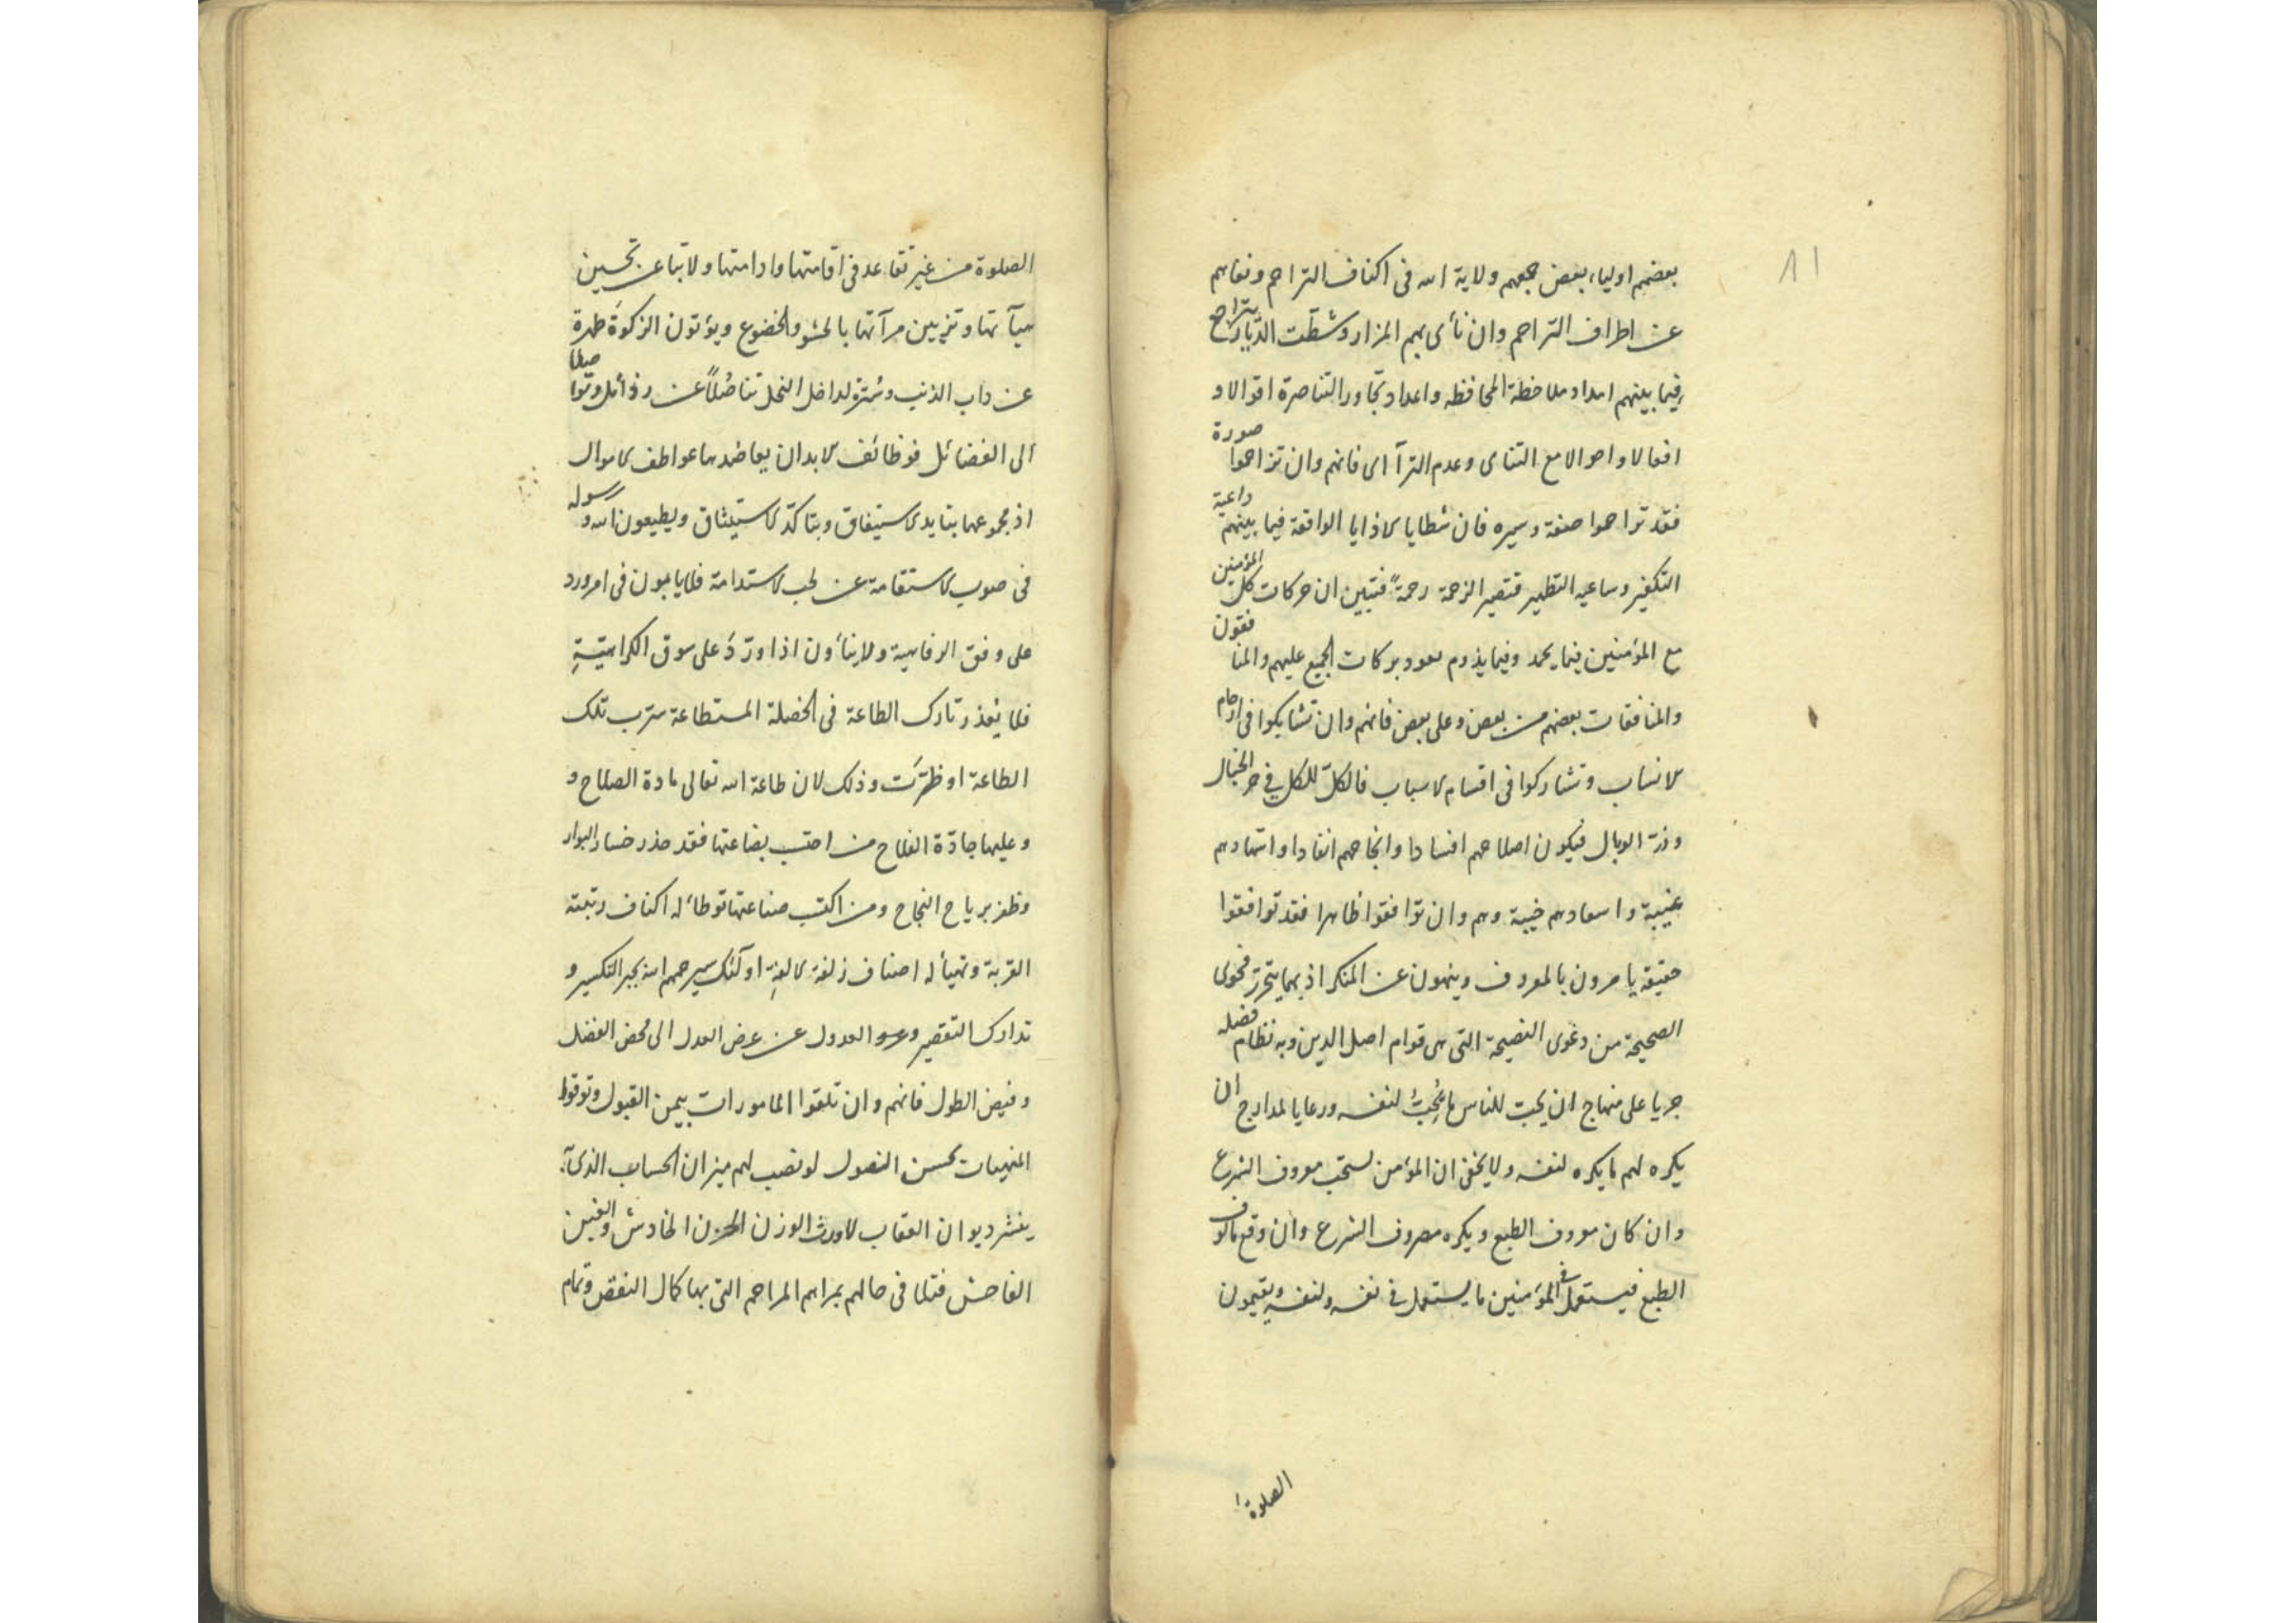 ١١
بعضهم اولياء بعض جمعهم ولاية الله فى اكناف التراحم ونفاهم
عن اطراف التراحم وان نأى بهم المزار وشطت الديار بتراح
فيما بينهم امداد ملاحظة المحافظه واعداد تجاور التناصرة اقوالا و
افعالا واحوالا مع التناى وعدم الترآاى فانهم وان تزاحموا صورة
فقد تراحموا صفة وسيره فان شظايا الاذايا الواقعة فيما بينهم داعية
التكفير وساعيه التطهير فتصير الزحمة رحمة فتبين ان حركات كل المؤمنين
مع المؤمنين فيما يحمد وفيما يذم معود بركات الجميع عليهم والمنافقون
والمنافقات بعضهم من بعض وعلى بعض فانهم وان تشابكوا فى ارحام
الانساب وتشاركوا فى اقسام الاسباب فالكل للكل فى جر الخبال
وزرة الوبال فيكون اصلاحهم افسادا وانجاحهم انفادا واشهادهم
غيبة واسعادهم خيبة وهم وان توافقوا ظاهرا فقد توافقوا
حقيقة يامرون بالمعروف وينهون عن المنكر اذ بهما يتحرز فحوى
الصحيحة من دعوى النصيحة التى هى قوام اصل الدين وبه نظام فضله
جريا على منهاج ان يحب للناس ما يحب لنفسه ورعايا لمدارج ان
يكره لهم ما يكره لنفسه ولا يخفى ان المؤمن يستحب معروف الشرع
وان كان معروف الطبع ويكره مصروف الشرع وان وقع مألوف
الطبع فيستعمل فى المؤمنين ما يستعمل فى نفسه ولنفسه ويقيمون
الصلوة
الصلوة من غير تقاعد فى اقامتها وادامتها ولا تباعد عن تحسين
هيآتها وتزيين مرآتها بالخشوع والخضوع ويؤتون الزكوة طهرة
عن داب الذنب وسترة لداخل النحل تناصلا عن رذائل وتوا صلا
الى الفضائل فوظائف الابدان يعاضدها عواطف الاموال
اذ مجموعهما يتايد الاستيفاق ويتاكد الاستيثاق ويطيعون الله ورسوله
فى صوب الاستقامة عن لحب الاستدامة فلا يابون فى امر ورد
على وفق الرفاهية ولا ينأون اذا ورد على سوق الكراهية
فلا يعذر تارك الطاعة فى الخصلة المستطاعة سرب تلك
الطاعة او ظهرت وذلك لان طاعة الله تعالى مادة الصلاح و
وعليها جادة الفلاح من احتسب بضاعتها فقد حذر خسار البوار
وظفر برياح النجاح ومن اكتسب صناعتها توطأ له اكناف رتبته
القربة وتهيأ له اصناف زلفة الالفة اولئك سيرحمهم الله بجبر التكسير و
تدارك التقصير وعرو العدول عن عرض العدل الى محض الفضل
وفيض الطول فانهم وان تلقوا المامورات بيمن القبول وتوقوا
المنهيات بحسن النصول لو نصب لهم ميزان الحساب الذى به
ينشر ديوان العقاب لاورث الوزن الحزن الخادش والغبن
الفاحش فتلافى حالهم بمراهم المراحم التى بها كمال النقص وتمام